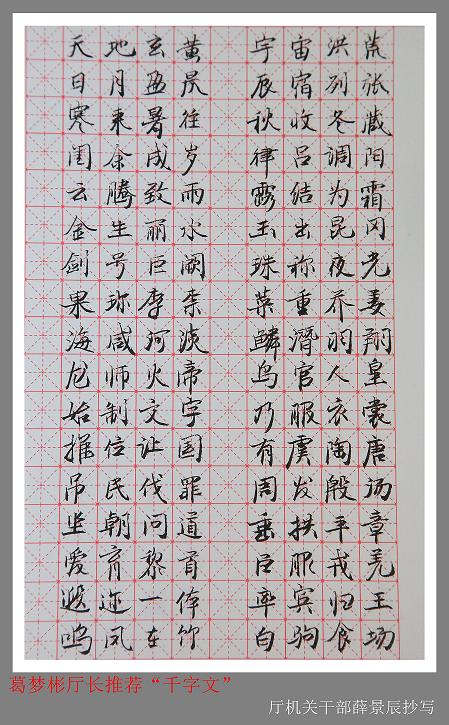 天地玄黄 宇宙洪荒
日月盈昃 辰宿列张
寒来暑往 秋收冬藏
闰余成岁 律吕调阳
云腾致雨 露结为霜
金生丽水 玉出昆冈
剑号巨阙 珠称夜光
果珍李柰 菜重芥姜
海咸河淡 鳞潜羽翔
龙师火帝 鸟官人皇
始制文字 乃服衣裳
推位让国 有虞陶唐
吊民伐罪 周发殷汤
坐朝问道 垂拱平章
爱育黎首 臣服戎羌
遐迩一体 率宾归王
鸣凤在竹 白驹食场
葛梦彬厅长推荐“千字文”
厅机关干部薛景辰抄写